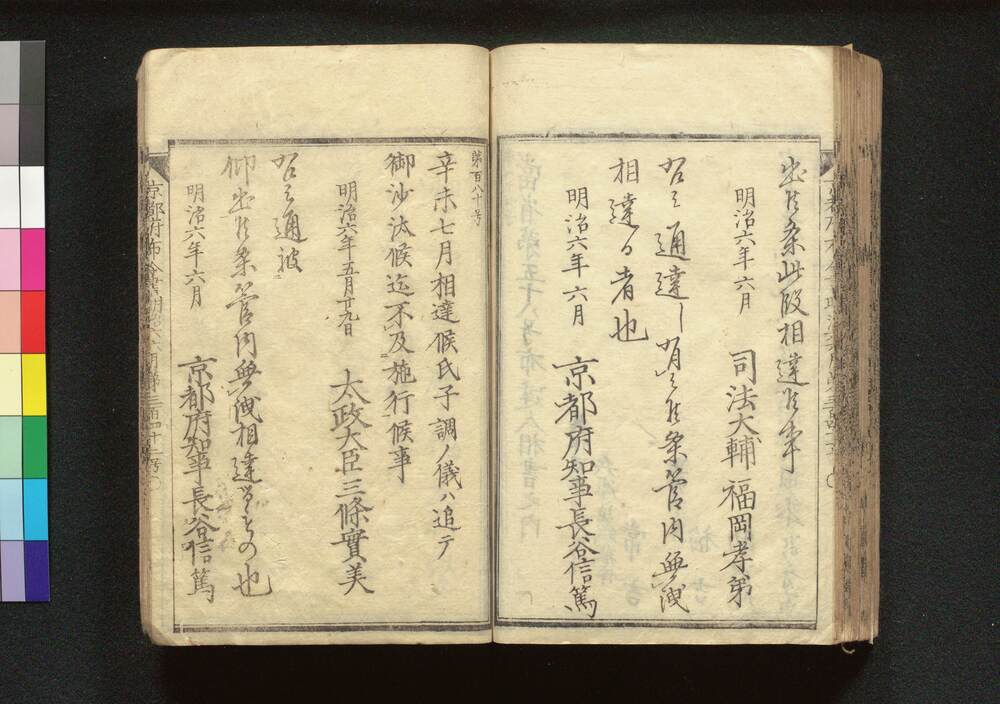 出候条此段相達候事
明治六年六月
司法大輔 福岡孝弟
右之通達し有之候条管内無洩
相達る者也
明治六年六月
京都府知事長谷信篤
第百八十号
辛未七月相達候氏子調ノ儀ハ追テ
御沙汰候迄不及施行候事
明治六年五月廿九日
太政大臣三條實美
右之通被
仰出候条管内無洩相達るもの也
明治六年六月
京都府知事長谷信篤
京都府布令書明治六